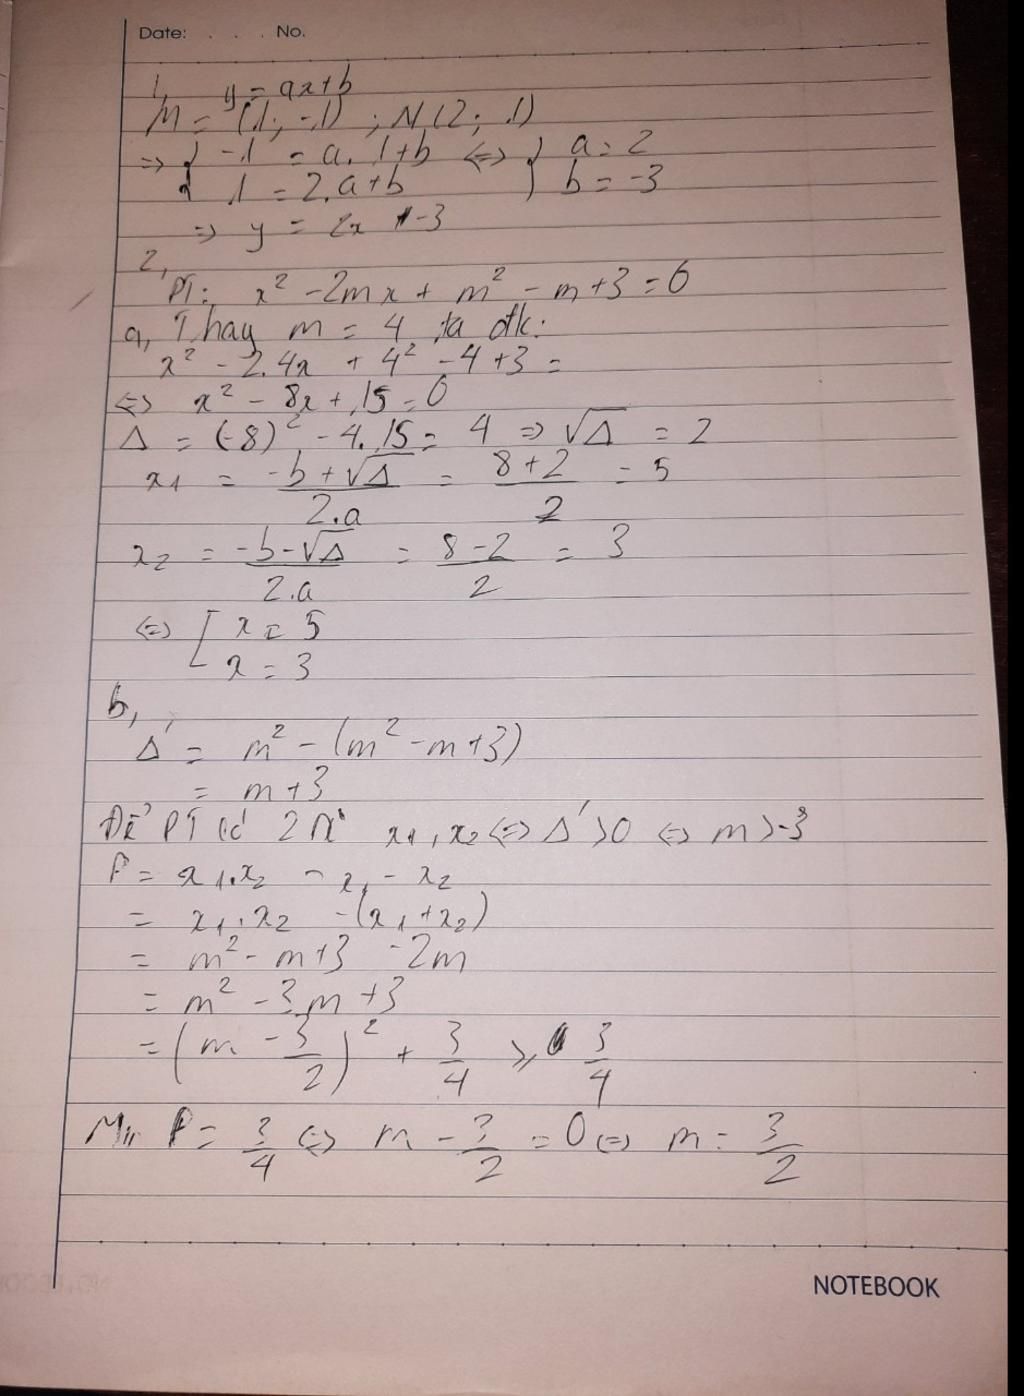 Date: . . . No.
1, y = ax+b
M = (1; -1) ; N(2; 1)
=> { -1 = a.1+b <=> { a = 2
{ 1 = 2.a+b { b = -3
=> y = 2x -3
2,
PT: x² - 2mx + m² - m + 3 = 0
a, Thay m = 4 ta đtk:
x² - 2.4x + 4² - 4 + 3 =
<=> x² - 8x + 15 = 0
Δ = (-8)² - 4.15 = 4 => √Δ = 2
x1 = (-b+√Δ)/(2.a) = (8+2)/2 = 5
x2 = (-b-√Δ)/(2.a) = (8-2)/2 = 3
<=> [ x = 5
[ x = 3
b,
Δ' = m² - (m² - m + 3)
= m + 3
Để PT có 2 n° x1, x2 <=> Δ' > 0 <=> m > -3
P = x1.x2 - x1 - x2
= x1.x2 - (x1 + x2)
= m² - m + 3 - 2m
= m² - 3m + 3
= (m - 3/2)² + 3/4 ⩾ 3/4
Min P = 3/4 <=> m - 3/2 = 0 <=> m = 3/2
NOTEBOOK